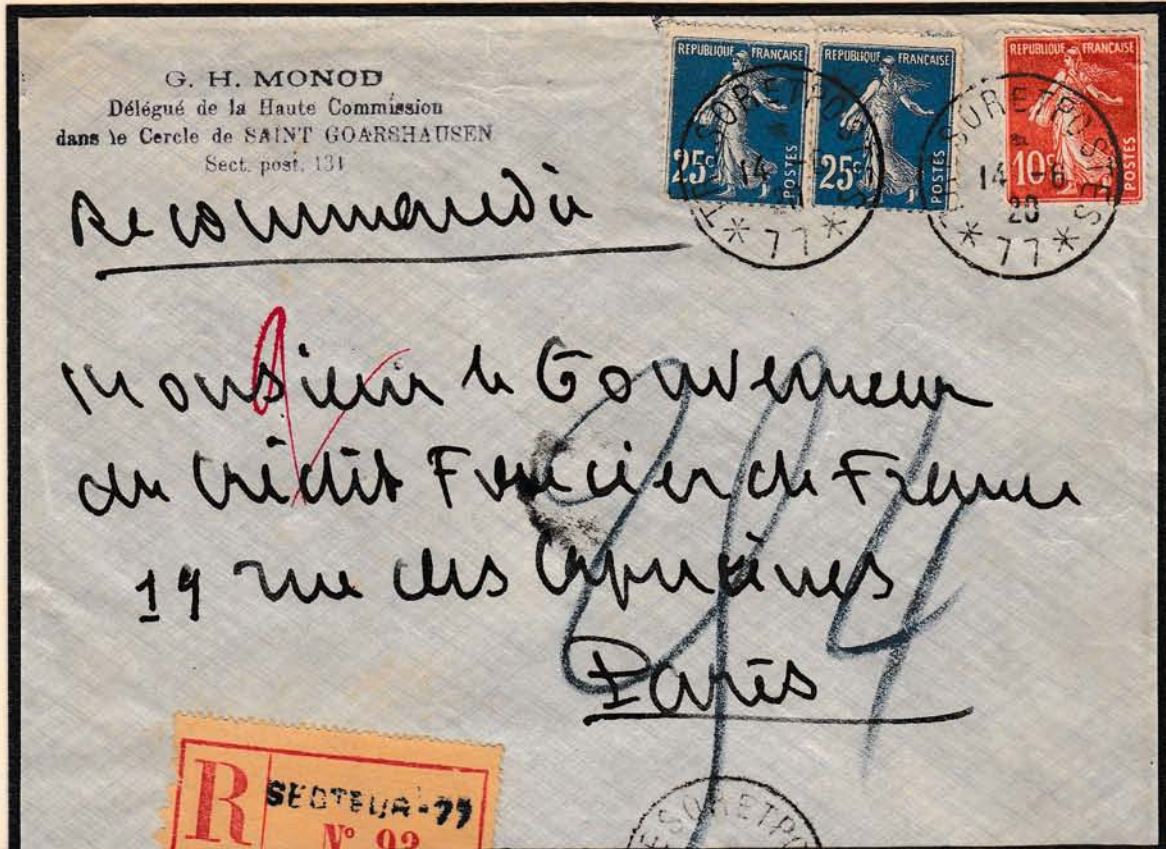 G. H. MONOD
Délégué de la Haute Commission
dans le Cercle de SAINT GOARSHAUSEN
Sect. post. 131
REPUBLIQUE FRANÇAISE
25c POSTES
REPUBLIQUE FRANÇAISE
25c POSTES
REPUBLIQUE FRANÇAISE
10c POSTES
TRESOR ET POSTES
14
* 77 *
TRESOR ET POSTES
14 -6
20
* 77 *
Recommandée
Monsieur le Gouverneur
du Crédit Foncier de France
19 rue des Capucines
Paris
R SECTEUR-77
N° 92
TRESOR ET PO